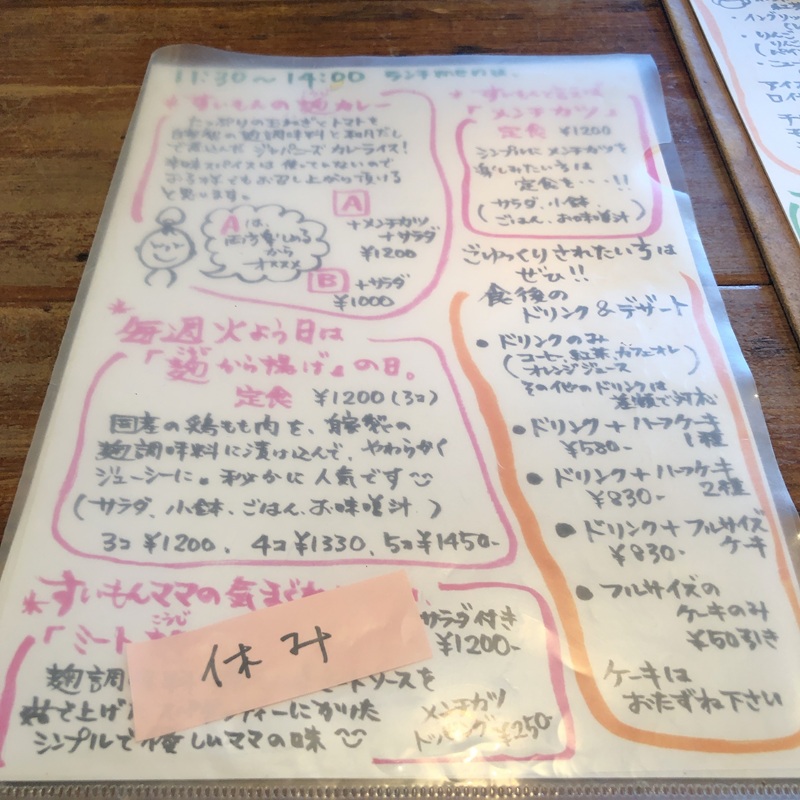 11:30～14:00
* すいもんの麹カレー
たっぷりの玉ねぎとトマトを
自家製の麹調味料と和風だし
で煮込んだ ジャパニーズカレーライス!
辛味スパイスは使っていないので
お子様でもお召し上がり頂ける
と思います。
Aは、
両方楽しめる
から
オススメ
A
+メンチカツ
+サラダ
¥1200
B
+サラダ
¥1000
* 毎週火よう日は
「麹から揚げ」の日。
定食 ¥1200(3コ)
国産の鶏もも肉を、自家製の
麹調味料に漬け込んで、やわらかく
ジューシーに。秘かに人気です
(サラダ、小鉢、ごはん、お味噌汁)
3コ ¥1200、 4コ ¥1330、 5コ ¥1450-
* すいもんママの気まぐれ
こうじ
「ミート
サラダ付き
¥1200-
休み
麹調
ソースを
シンプルで優しいママの味
メンチカツ
トッピング ¥250-
「メンチカツ」
定食 ¥1200
シンプルにメンチカツを
楽しみたい方は
定食を・・・!!
(サラダ、小鉢、
ごはん、お味噌汁)
ごゆっくりされたい方は
ぜひ!!
食後の
ドリンク&デザート
• ドリンクのみ
(コーヒー、紅茶、カフェオレ
オレンジジュース)
その他のドリンクは
差額で
• ドリンク+ハーフケーキ
1種
¥580-
• ドリンク+ハーフケーキ
2種
¥830-
• ドリンク+フルサイズ
ケーキ
¥830-
• フルサイズの
ケーキのみ
¥50引き
ケーキは
おたずね下さい